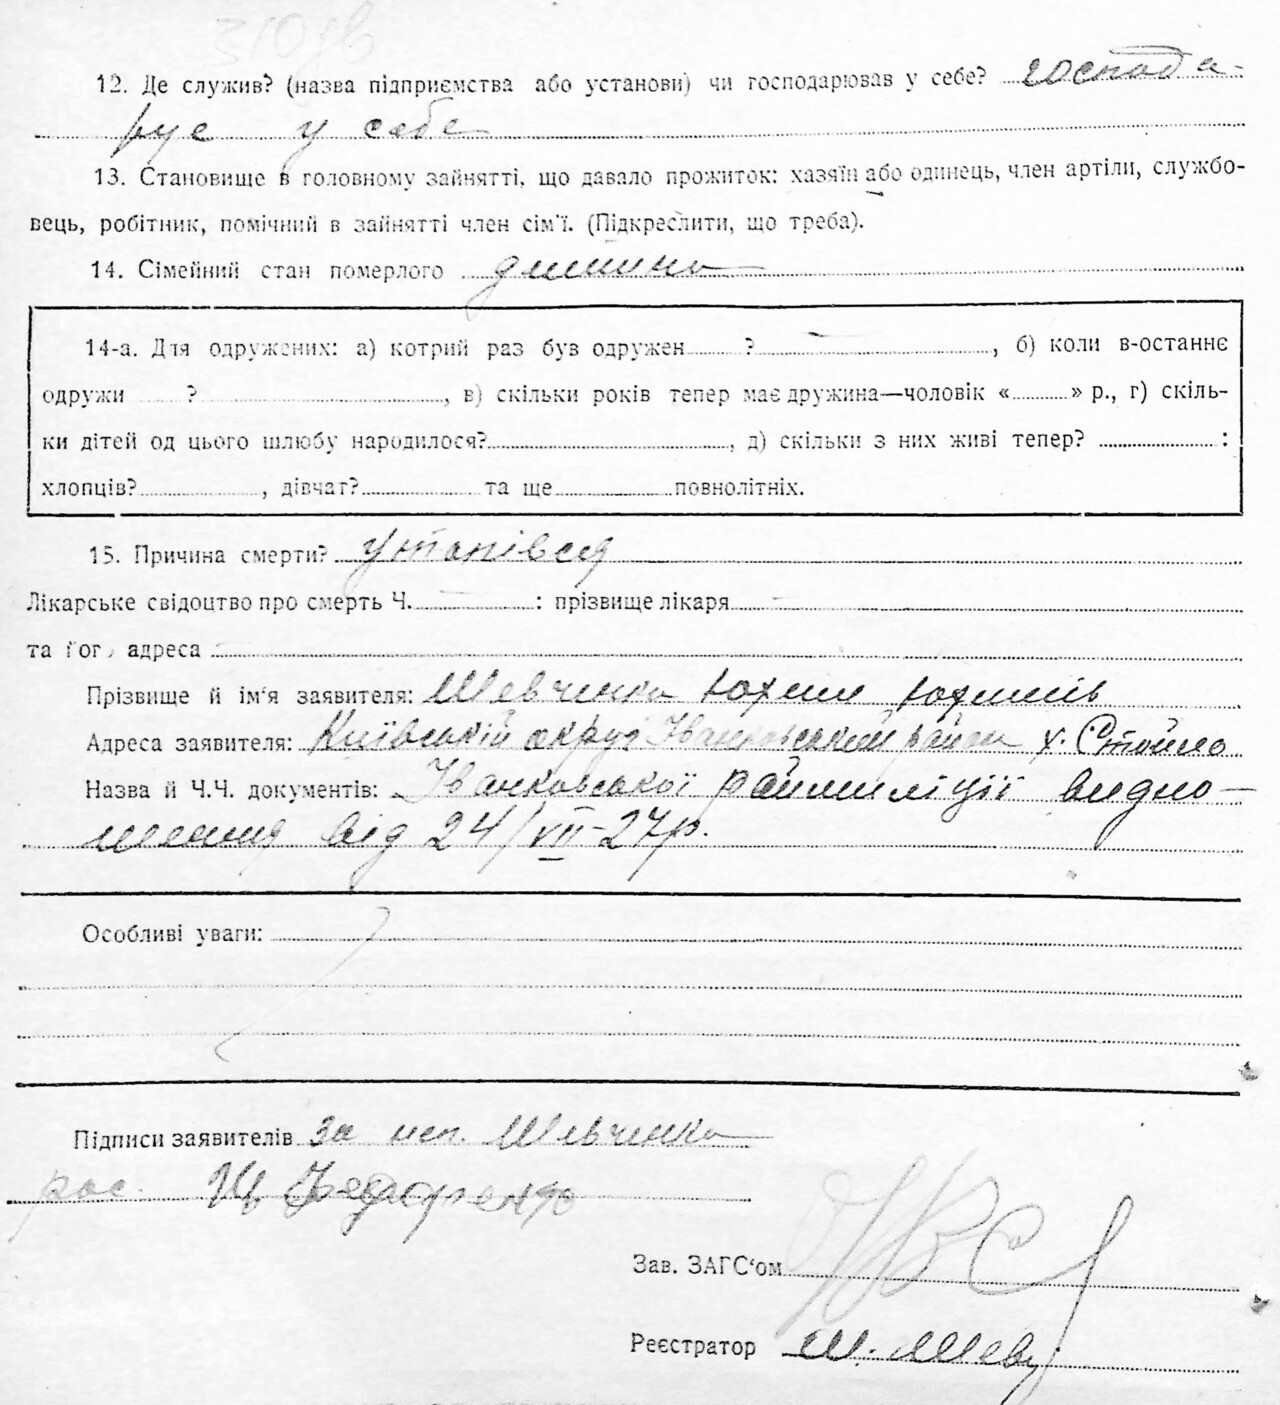 12. Де служив? (назва підприємства або установи) чи господарював у себе? господа-
рує у себе
13. Становище в головному зайнятті, що давало прожиток: хазяїн або одинець, член артіли, службо-
вець, робітник, помічний в зайнятті член сім'ї. (Підкреслити, що треба).
14. Сімейний стан померлого дитина
14-а. Для одружених: а) котрий раз був одружен ? , б) коли в-останнє
одружи ? , в) скільки років тепер має дружина—чоловік « » р., г) скіль-
ки дітей од цього шлюбу народилося? , д) скільки з них живі тепер? :
хлопців? , дівчат? та ще повнолітніх.
15. Причина смерти? утопівся
Лікарське свідоцтво про смерть Ч. : прізвище лікаря
та його адреса
Прізвище й ім'я заявителя: Шевченко Юхим Юхимів
Адреса заявителя: Київській округ Іванковський район х. Стойно
Назва й Ч.Ч. документів: Іванковської райміліції видно-
шення від 24/VII-27р.
Особливі уваги:
Підписи заявителів за неп. Шевченко
рос. Федоренко
Зав. ЗАГС'ом
Реєстратор Ш. Шевч